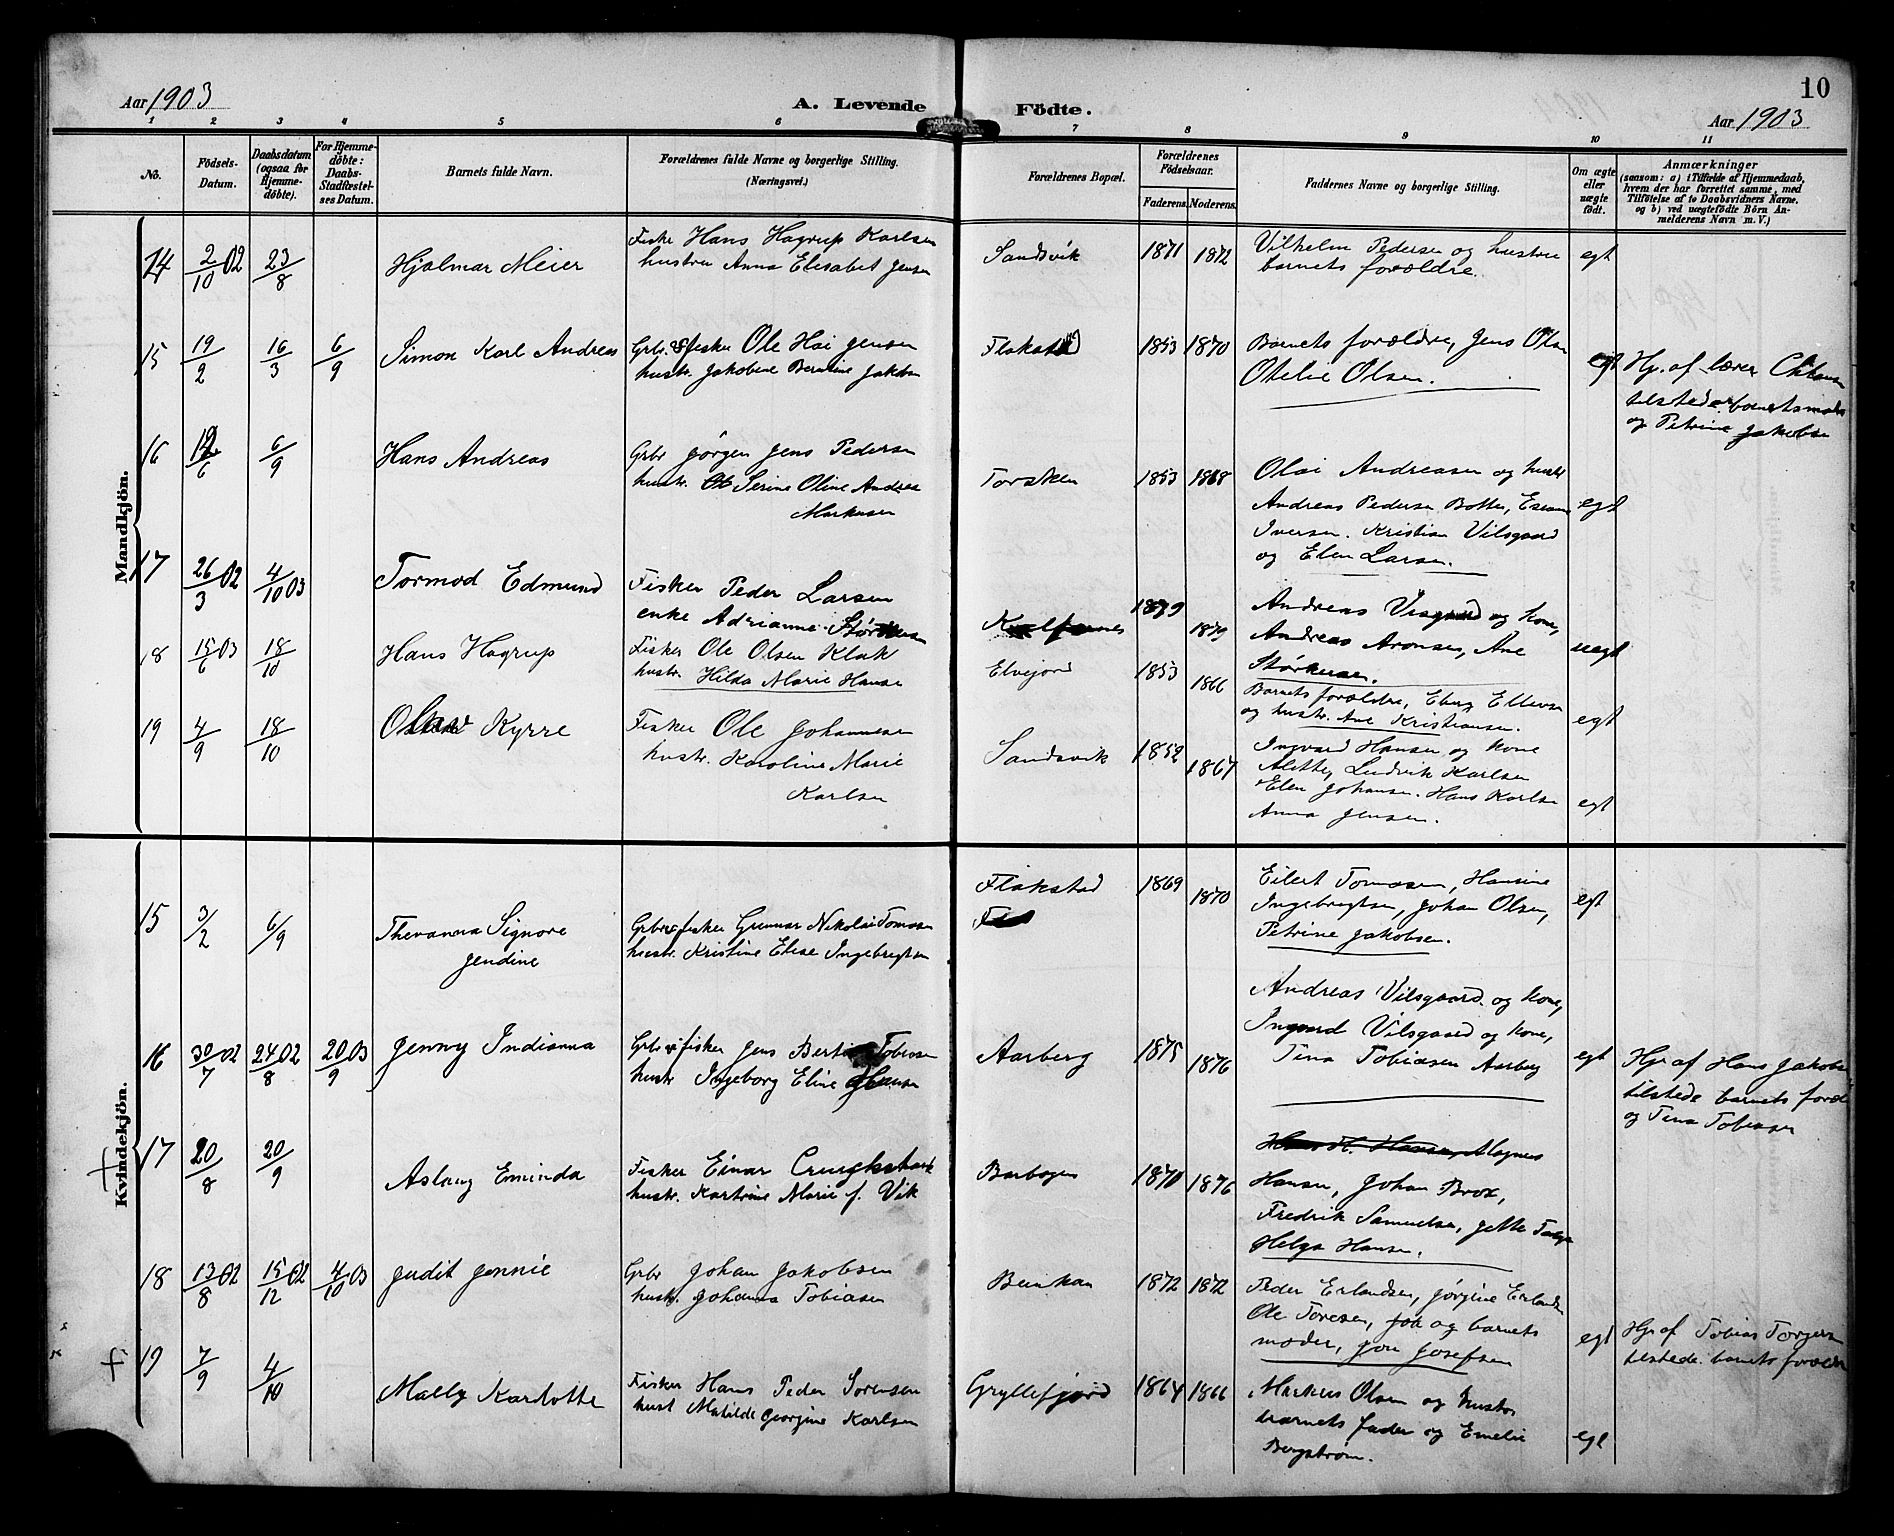 Aar 1903
A. Levende Födte.
10
Aar 1903
1 2 3 4 5 6 7 8 9 10 11
No.
Födsels-Datum.
Daabsdatum (ogsaa for Hjemme-döbte).
For Hjemme-döbte: Daabs-Stadfæstel-ses Datum.
Barnets fulde Navn.
Forældrenes fulde Navne og borgerlige Stilling.
(Næringsvei.)
Forældrenes Bopæl.
Forældrenes Födselsaar.
Faderens. Moderens.
Faddernes Navne og borgerlige Stilling.
Om ægte eller uægte födt.
Anmærkninger
(saasom: a) i Tilfælde af Hjemmedaab, hvem der har forrettet samme, med Tilföielse af to Daabsvidners Navne. og b) ved uægtefödte Börn An-melderens Navn m. V.)
Mandkjön.
14 2/10 02 23/8 Hjalmar Meier
Fisker Hans Hagrup Karlsen
hustru Anna Elisabet Jensen
Sandsvik 1871 1872
Vilhelm Pedersen og hustru
barnets forældre.
egt
15 19/2 16/3 6/9 Simon Karl Andreas
Grbr. & fisker Ole Hai Jensen
hustr. Jakobine Berntine Jakobsen
Flakstad 1853 1870
Barnets forældre, Jens Olsen
Otelie Olsen.
egt
Hj. af lærer
tilstede barnets moder
og Petrine Jakobsen
16 6/9 Hans Andreas
Grbr Jørgen Jens Pedersen
hustr. Serine Oline Andrea
Markusen
Torsken 1853 1868
Olai Andreasen og hustr
Andreas Pedersen Botten,
Iversen. Kristian Vilsgaard
og Elen Larsen.
egt
17 26/3 02 4/10 03 Tormod Edmund
Fisker Peder Larsen
enke Adrianne Størkersen
1879 1879
Andreas Visgaard og kone,
Andreas Aronsen, Ane
Størkersen.
uegt
18 15/6 03 18/10 Hans Hagrup
Fisker Ole Olsen Klak
hustr. Hilda Marie Hansen
Elvejord 1853 1866
Barnets forældre, Eberg Ellevsen
og hustr. Ane Kristiansen.
egt
19 4/9 18/10 Olav Kyrre
Fisker Ole Johannesen
hustr. Karoline Marie
Karlsen
Sandsvik 1852 1867
Ingvard Hansen og kone
Alette, Ludvik Karlsen
Elen Johansen. Hans Karlsen
Anna Jensen.
egt
Kvindekjön.
15 3/2 6/9 Thevanna Signore
Jendine
Grbr & fisker Gunnar Nikolai Tomasen
hustr. Kristine Elise Ingebrigtsen
Flakstad 1869 1870
Eilert Tomasen, Hansine
Ingebrigtsen, Johan Olsen,
Petrine Jakobsen.
egt
16 30/7 02 24/8 02 20/9 03 Jenny Indianna
Grbr & fisker Jens Tobiasen
hustr Ingeborg Eline
Aarberg 1875 1876
Andreas Vilsgaard og kone,
Ingvard Vilsgaard og kone,
Tina Tobiasen Aarberg
egt
Hj. af Hans Jakobsen
tilstede barnets foræld
og Tina Tobiasen
17 20/8 20/9 Aslaug Eminda
Fisker Einar
hustr. Kartrine Marie f. Vik
Barbogen 1870 1876
Hans H. Hansen, Magnus
Hansen, Johan Brox,
Fredrik Samuelsen, Jette
Helga Hansen.
18 13/8 02 15/12 02 4/10 03 Judit Jennie
Grbr Johan Jakobsen
hustr. Johanna Tobiasen
Benkan 1872 1872
Peder Erlandsen, Jørgine Erlandsen
Ole Toresen, og barnets
moder, Jon Josefsen
egt
Hj. af Tobias Torgers
tilstede barnets forældr
19 7/9 4/10 Mally Karlotte
Fisker Hans Peder Sørensen
hust Matilde Georgine Karlsen
Gryllefjord 1864 1866
Markus Olsen og hustr
barnets fader og Emelie
Bergstrøm.
egt